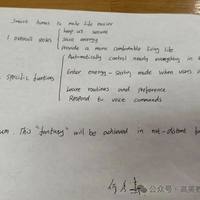 Smart homes to make life easier
1 overall roles
keep us secure
save energy
Provide a more comfortable living life
Automatically control nearly everything in
specific functions
Enter energy-saving mode when users
Learn routines and preference
Respond to voice commands
This "fantasy" will be achieved in not-distant
公众号·高英教